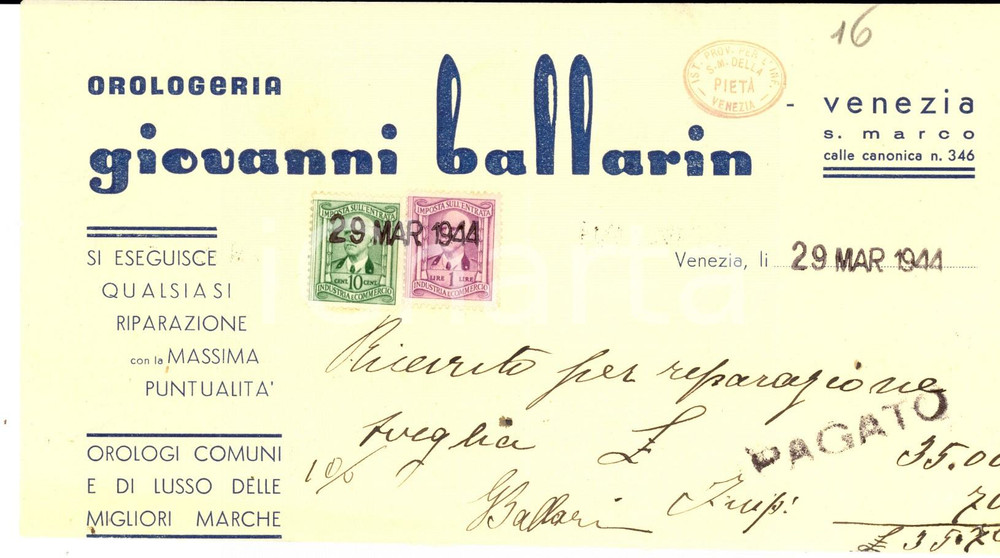 16
OROLOGERIA
giovanni ballarin
IST. PROV. PER L'INF.
S. M. DELLA
PIETÀ
VENEZIA
- venezia
s. marco
calle canonica n. 346
IMPOSTA SULL'ENTRATA
CENT. 10 CENT.
INDUSTRIA E COMMERCIO
IMPOSTA SULL'ENTRATA
LIRE 1 LIRE
INDUSTRIA E COMMERCIO
29 MAR 1944
Venezia, li 29 MAR 1944
SI ESEGUISCE
QUALSIASI
RIPARAZIONE
con la MASSIMA
PUNTUALITA'
OROLOGI COMUNI
E DI LUSSO DELLE
MIGLIORI MARCHE
Ricevuto per reparazione
sveglia £ 35.00
PAGATO
Ballarin Imp: 70
£ 35.70